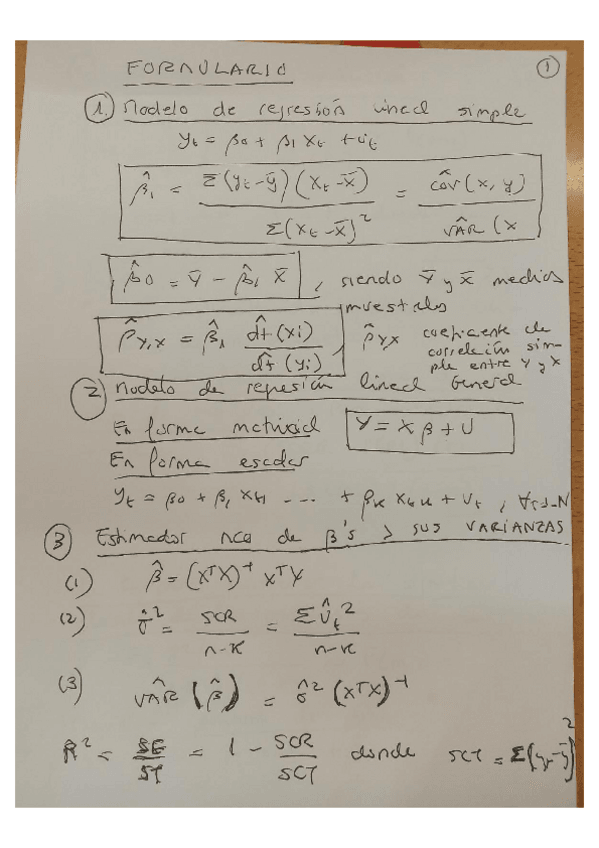 FORMULARIO
①
1. Modelo de regresión lineal simple
yt = β0 + β1 Xt + ut
β̂1 = Σ(yt-ȳ)(Xt-x̄) / Σ(Xt-x̄)² = côv(x, y) / vÂR (x
β̂0 = Ȳ - β̂1 X̄ , siendo Ȳ y X̄ medias
muestrales
ρ̂y,x = β̂1 d̂t(xi) / d̂t(yi) , ρ̂yx coeficiente de
correlación sim-
ple entre Y y X
2 Modelo de regresión lineal General
En forma matricial Y = X β + U
En forma escalar
yt = β0 + β1 Xt1 --- + βk Xtk + ut ,
3 Estimador MCO de β's y SUS VARIANZAS
(1) β̂ = (XᵀX)⁻¹ XᵀY
(2) σ̂² = SCR / n-k = Σût² / n-k
(3) VÂR (β̂) = σ̂² (XᵀX)⁻¹
R² = SE / ST = 1 - SCR / SCT donde SCT = Σ(yt-ȳ)²